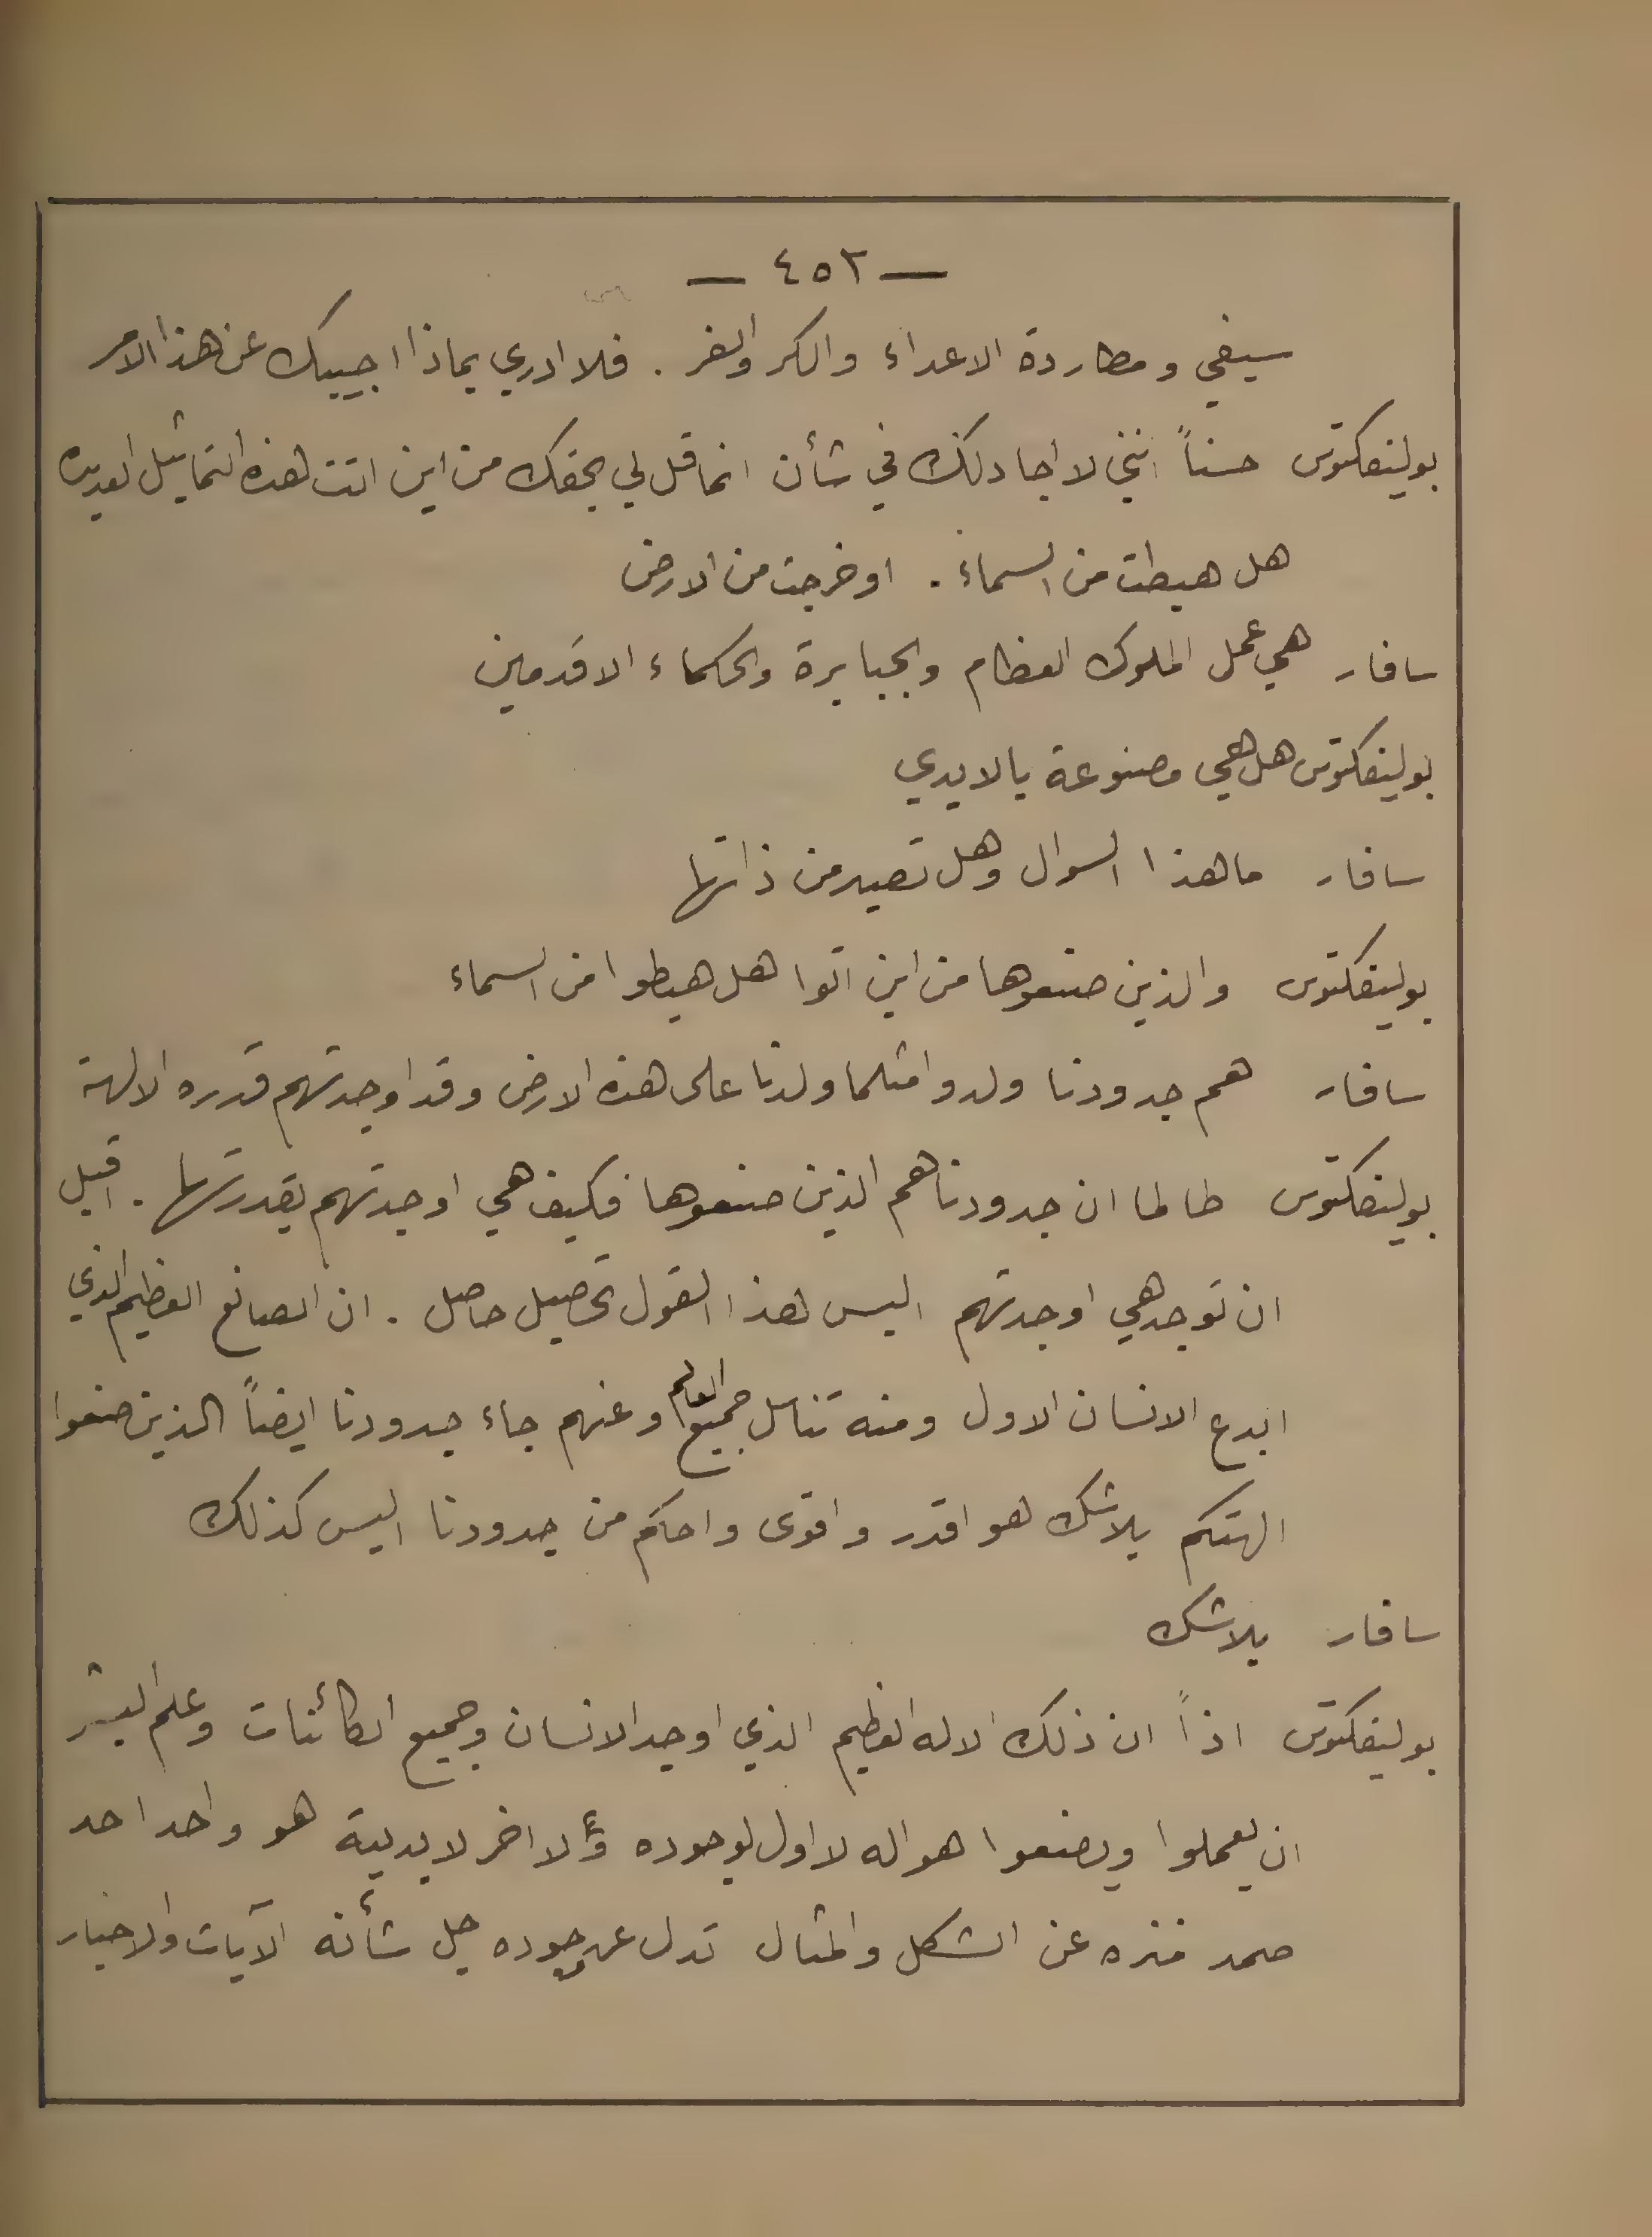 — ٤٥٢ —
سيفي ومطاردة الاعداء والكر والفر . فلا ادري بماذا اجيبك عن هذا الامر
بوليفكتوس حسناً انني لا اجادلك في شأن انما قل لي بحقك من اين اتت هذه التماثيل العديده
هل هبطت من السماء . او خرجت من الارض
سافار هي عمل الملوك العظام والجبابرة والحكماء الاقدمين
بوليفكتوس هل هي مصنوعة بالايدي
سافار ما هذا السوال وهل تصير من ذاتها
بوليفكتوس والذين صنعوها من اين اتوا هل هبطوا من السماء
سافار هم جدودنا ولدوا مثلما ولدنا على هذه الارض وقد اوجدتهم قدره الالهة
بوليفكتوس طالما ان جدودنا هم الذين صنعوها فكيف هي اوجدتهم بقدرتها . اقبل
ان توجد هي اوجدتهم اليس هذا القول تحصيل حاصل . ان الصانع العظيم الذي
ابدع الانسان الاول ومنه تناسل جميع العالم وعنهم جاء جدودنا ايضاً الذين صنعوا
الهتكم بلاشك هو اقدر واقوى واحكم من جدودنا اليس كذلك
سافار بلاشك
بوليفكتوس اذاً ان ذلك الاله العظيم الذي اوجد الانسان وجميع الكائنات وعلم البشر
ان يعملوا ويصنعوا هو اله لا اول لوجوده ولا اخر لابديته هو واحد احد
صمد منزه عن الشكل والمثال تدل عن وجوده جل شأنه الآيات والاخبار